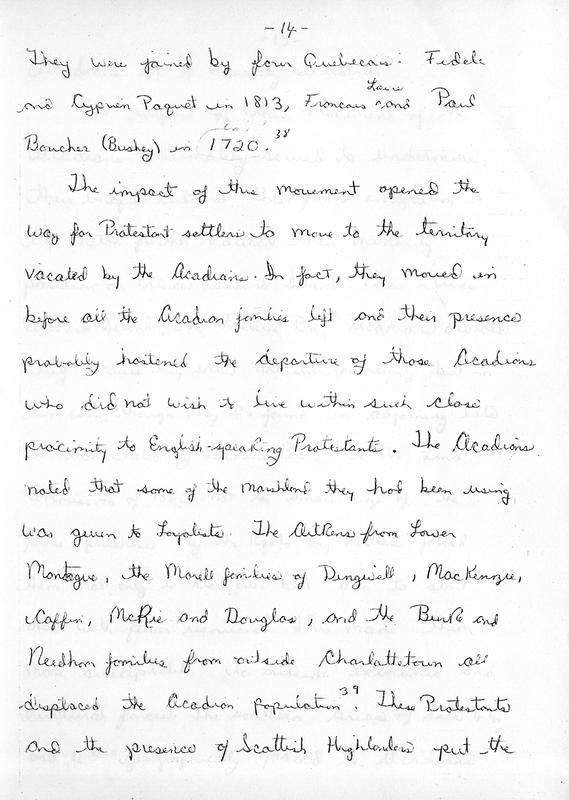 -14-
They were joined by four Quebecais: Fidele
Louis
and Cyprien Paquet in 1813, Francais ^ and Paul
Boucher (Bushey) in 1720.38
The impact of this movement opened the
way for Protestant settlers to move to the territory
vacated by the Acadians. In fact, they moved in
before all the Acadian families left and their presence
probably hastened the departure of those Acadians
who did not wish to live within such close
proximity to English-speaking Protestants. The Acadians
noted that some of the marshland they had been using
was given to Loyalists. The Aitkens from Lower
Montague, the Morell families of Dingwell, MacKenzie,
Caffin, McKie and Douglas, and the Burke and
Needham families from outside Charlottetown all
displaced the Acadian population39. These Protestants
and the presence of Scottish Highlanders put the